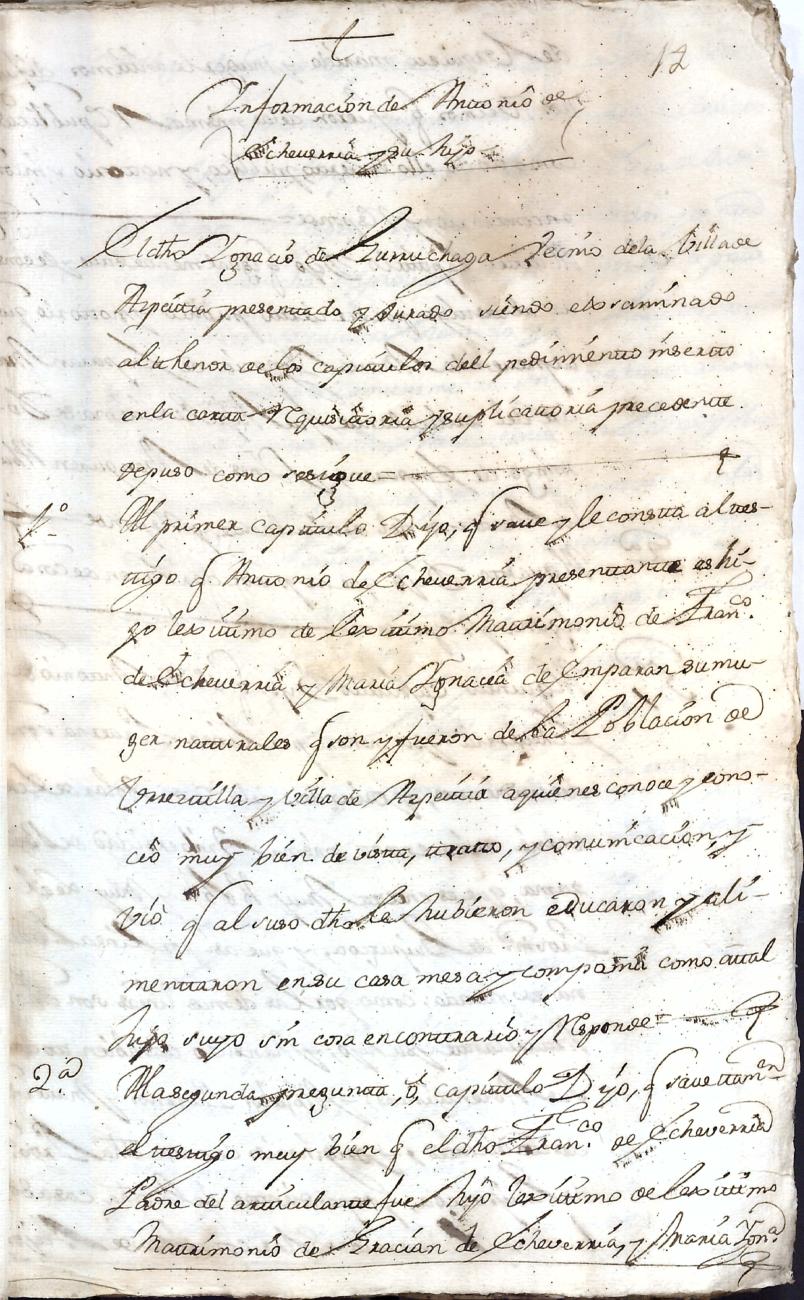 12
Informacion de Antonio de
Echeverria y su hijo
El dho Ygnacio de Gurruchaga Vecino dela Villa de
Azpeitia presentado y Jurado siendo exsaminado
al thenor de los capitulos dell pedimiento inserto
en la carta Requisitoria y suplicatoria precedente
depuso como sesigue=
1º Al primer capitulo Dijo, q save y le consta al tes-
tigo q Antonio de Echeverria presentante es hi-
jo lexitimo de lexitimo Matrimonio de Franco.
de Echeverria y Maria Ygnacia de Emparan su mu-
ger naturales q son y fueron de la Poblacion de
Urrestilla y Villa de Azpeitia a quienes conoce y cono-
ció muy bien de vista, trato, y comunicacion, y
vió q al suso dho le hubieron educaron y ali-
mentaron en su casa mesa y compañia como atal
hijo suyo sin cosa encontrario y Responde=
2ª Ala segunda pregunta, ó, capitulo Dijo, q save tamen
el testigo muy bien q el dho Franco. de Echeverria
Padre del articulante fue hijo lexitimo de lexitimo
Matrimonio de Gracian de Echeverria, y Maria Ygna.